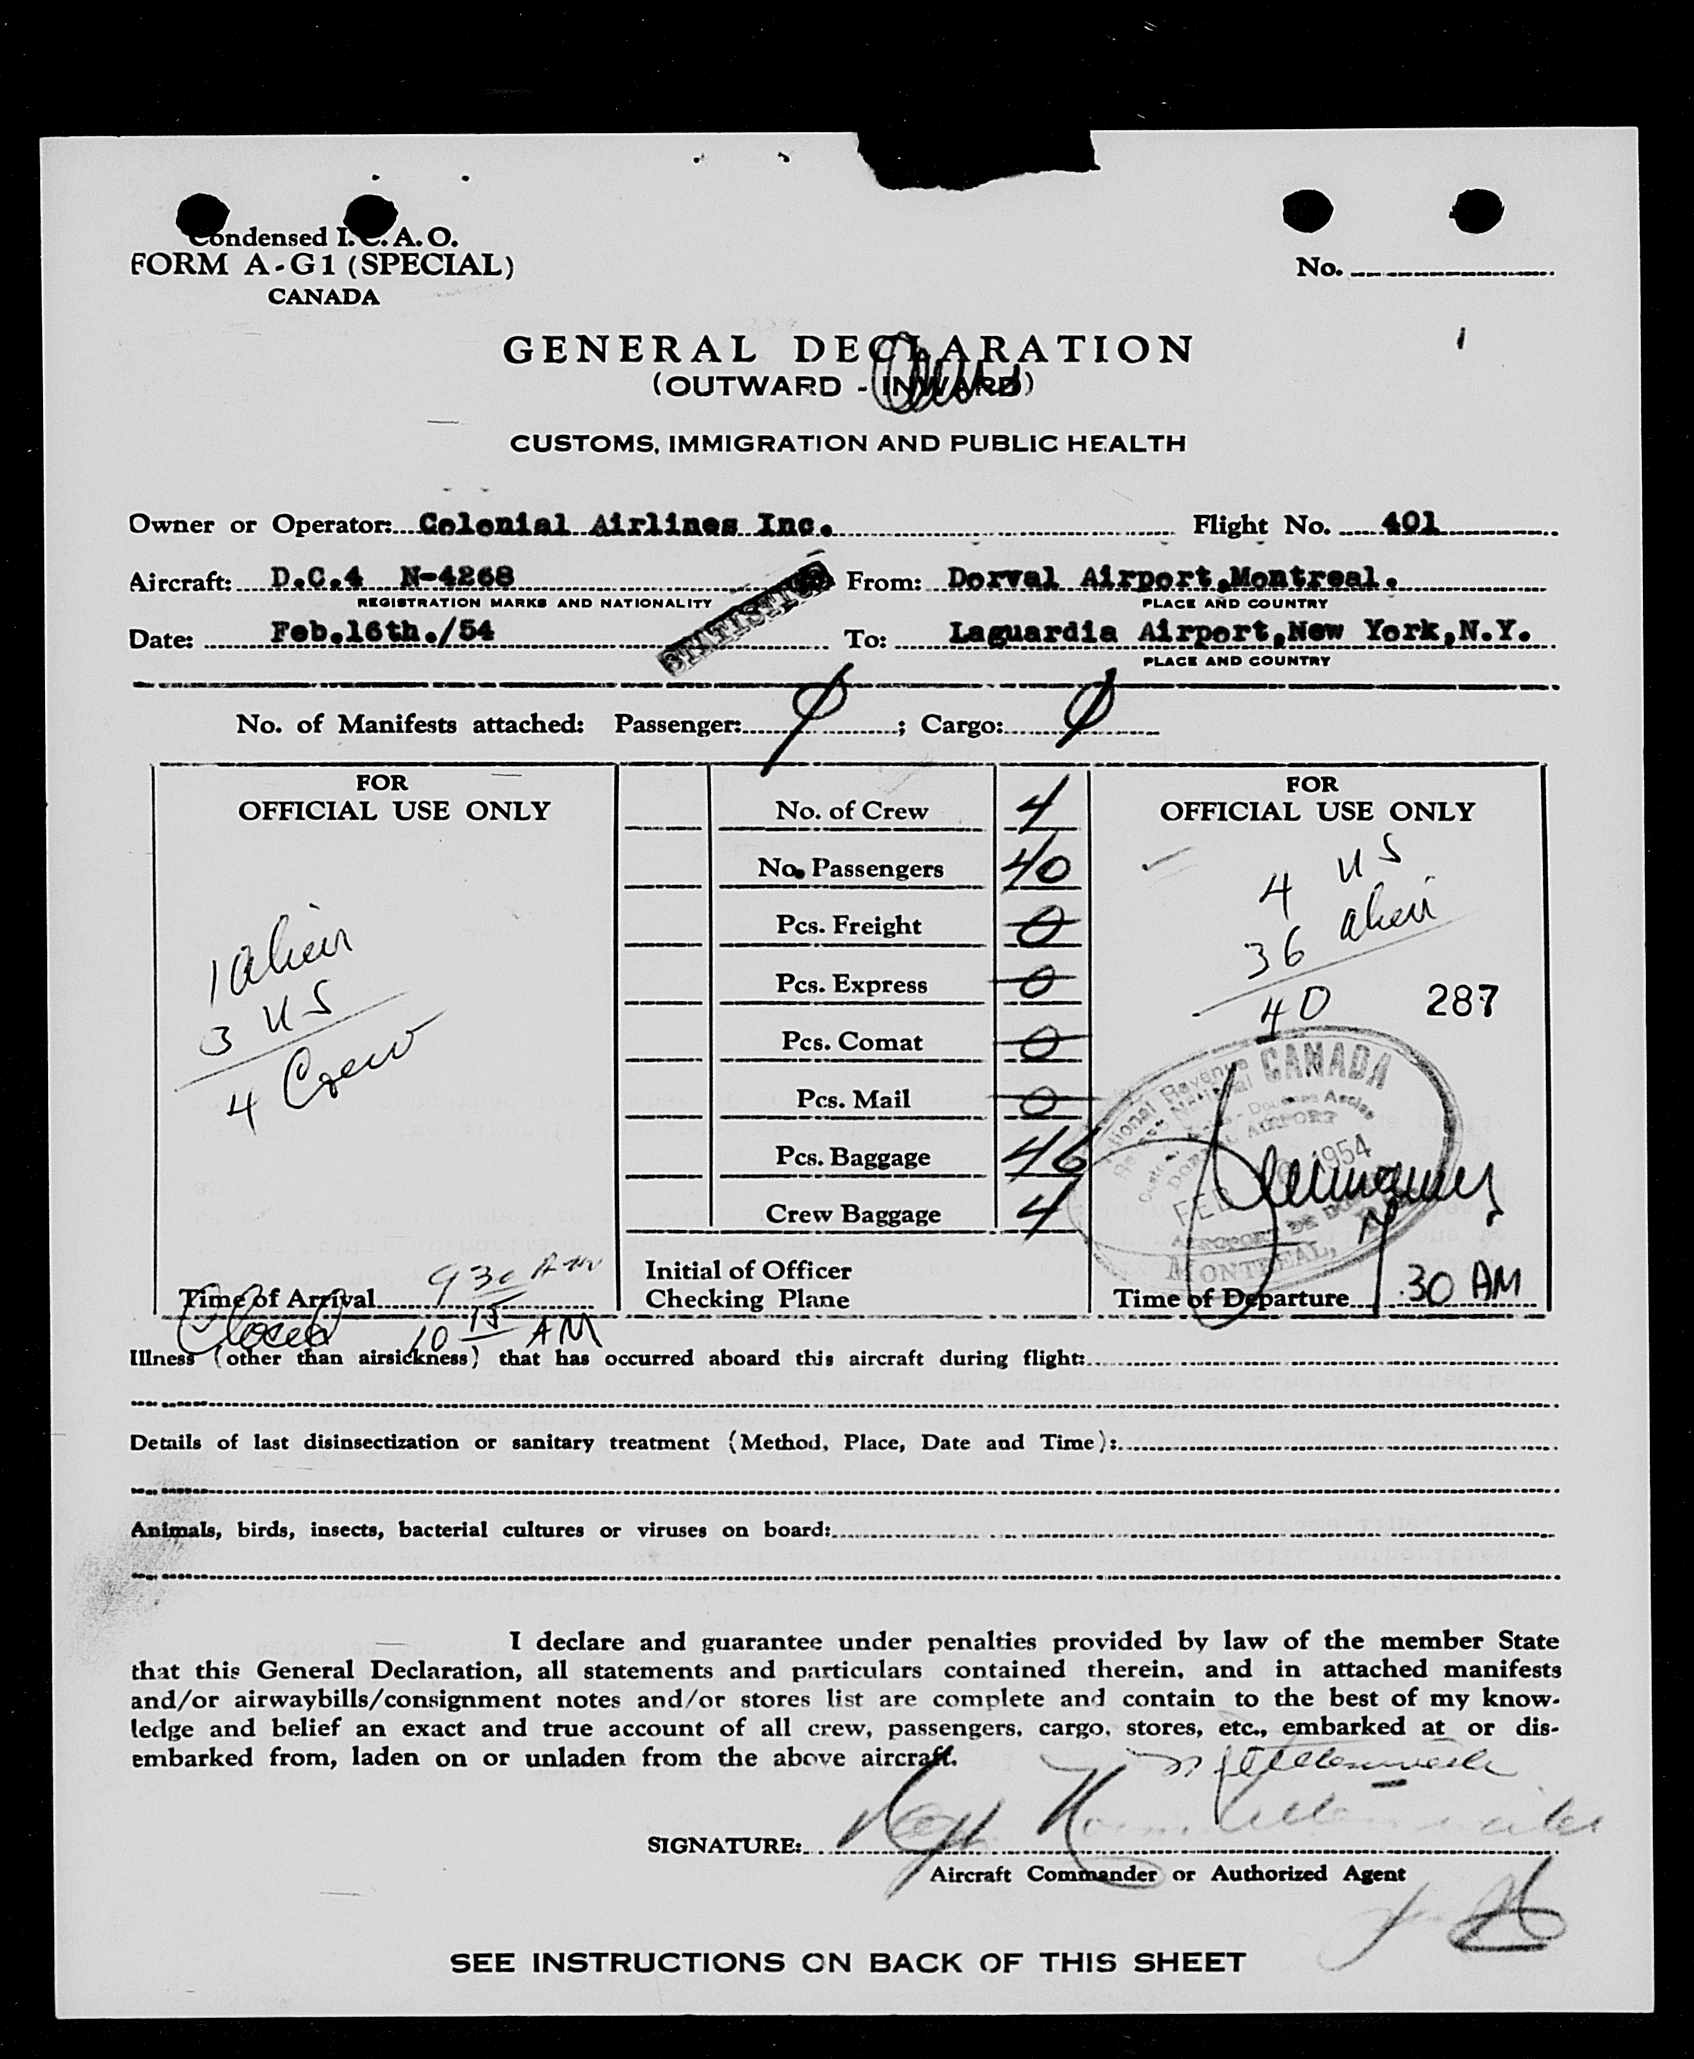 Condensed I.C.A.O.
FORM A-G1 (SPECIAL)
CANADA
No.
GENERAL DECLARATION
(OUTWARD - INWARD)
CUSTOMS, IMMIGRATION AND PUBLIC HEALTH
Owner or Operator: Colonial Airlines Inc. Flight No. 401
Aircraft: D.C.4 N-4268 From: Dorval Airport,Montreal.
REGISTRATION MARKS AND NATIONALITY PLACE AND COUNTRY
STATISTICS
Date: Feb.16th./54 To: Laguardia Airport,New York,N.Y.
PLACE AND COUNTRY
No. of Manifests attached: Passenger: ; Cargo:
FOR
OFFICIAL USE ONLY
1 alien
3 US
4 Crew
Time of Arrival 930 AM
Closed 10 15 AM
No. of Crew 4
No. Passengers 40
Pcs. Freight 0
Pcs. Express 0
Pcs. Comat 0
Pcs. Mail 0
Pcs. Baggage 46
Crew Baggage 4
Initial of Officer
Checking Plane
FOR
OFFICIAL USE ONLY
4 US
36 alien
40
287
CANADA
National Revenue
AIRPORT
FEB 1954
AEROPORT DE
MONTREAL,
Time of Departure .30 AM
Illness (other than airsickness) that has occurred aboard this aircraft during flight:
Details of last disinsectization or sanitary treatment (Method, Place, Date and Time):
Animals, birds, insects, bacterial cultures or viruses on board:
I declare and guarantee under penalties provided by law of the member State
that this General Declaration, all statements and particulars contained therein, and in attached manifests
and/or airwaybills/consignment notes and/or stores list are complete and contain to the best of my know-
ledge and belief an exact and true account of all crew, passengers, cargo, stores, etc., embarked at or dis-
embarked from, laden on or unladen from the above aircraft.
SIGNATURE:
Aircraft Commander or Authorized Agent
SEE INSTRUCTIONS ON BACK OF THIS SHEET